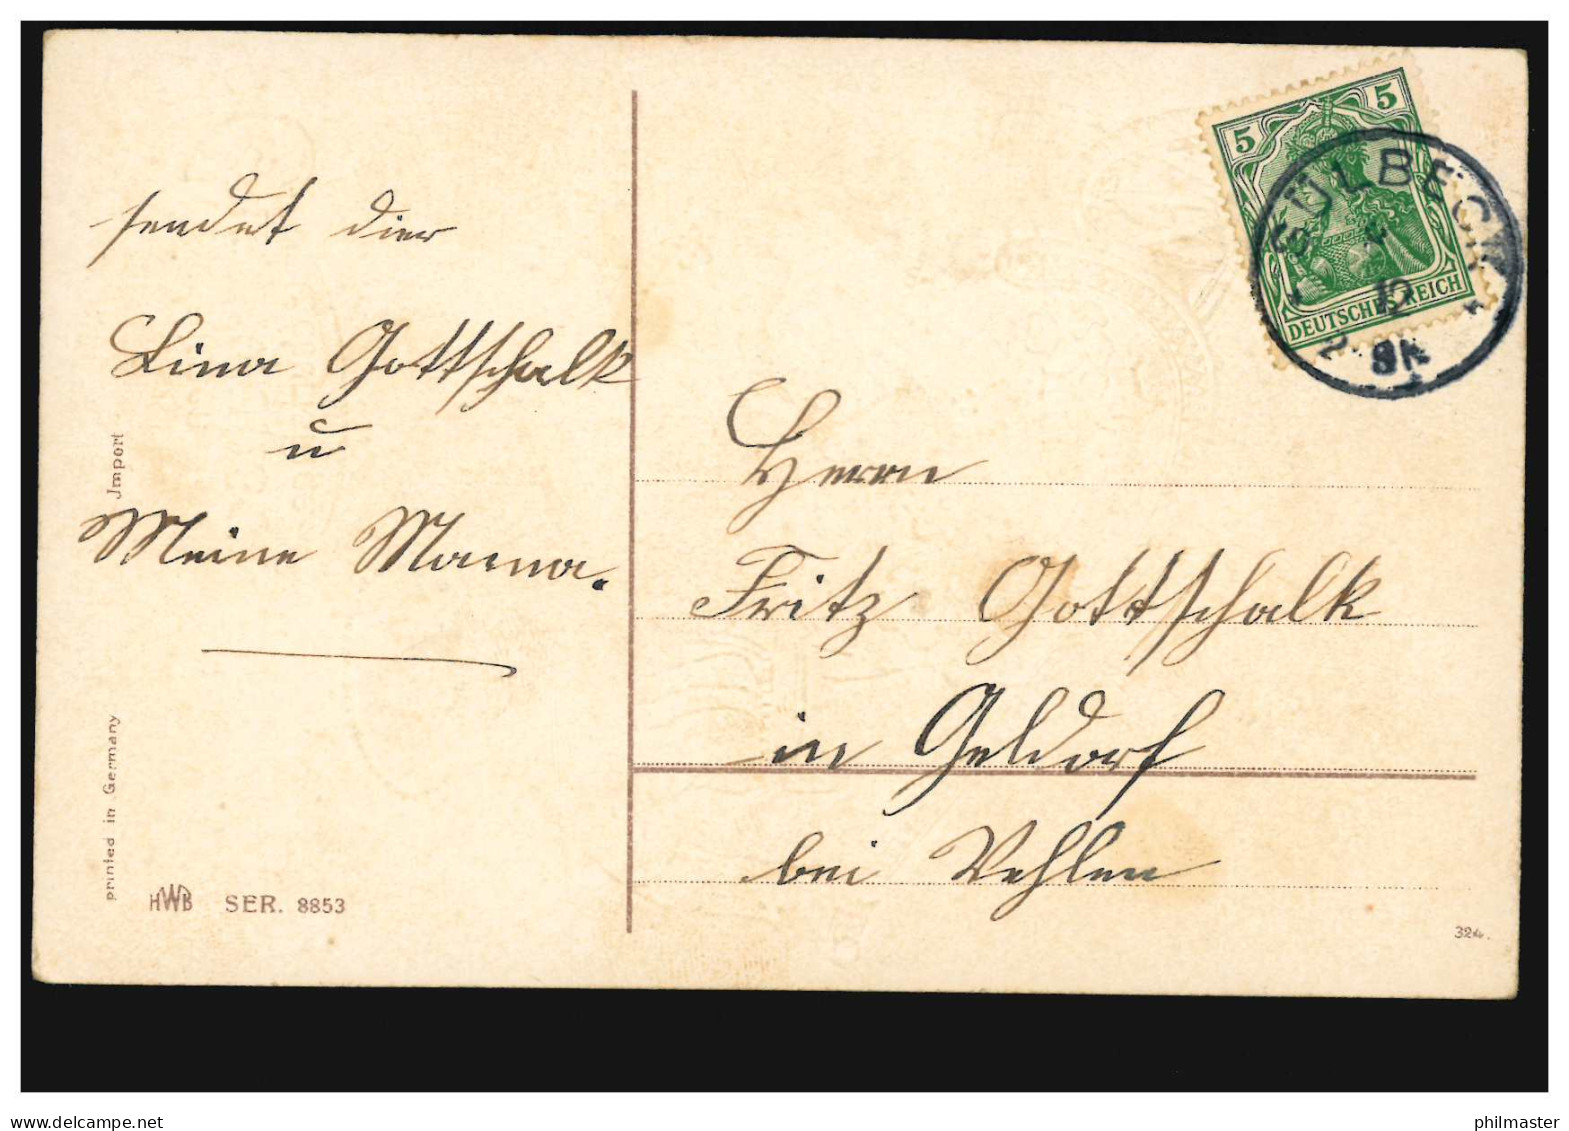 sendet dier
Lina Gottschalk
u
Meine Mama.
Jmport
printed in Germany
HWB SER. 8853
5 5
DEUTSCHES REICH
SÜLBECK
12
8 N
Herrn
Fritz Gottschalk
in Geldorf
bei Vehlen
324.
www.delcampe.net
philmaster